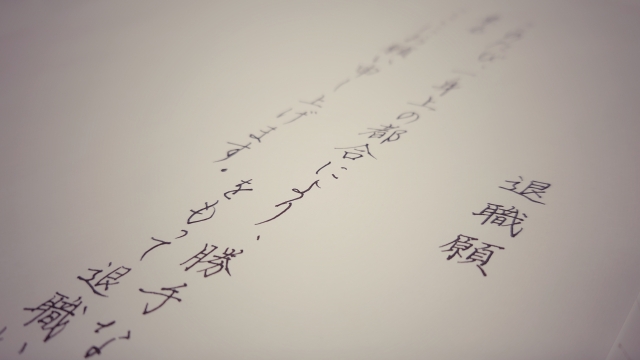 退職願
一身上の都合により、勝手な
上げます。をもって退職